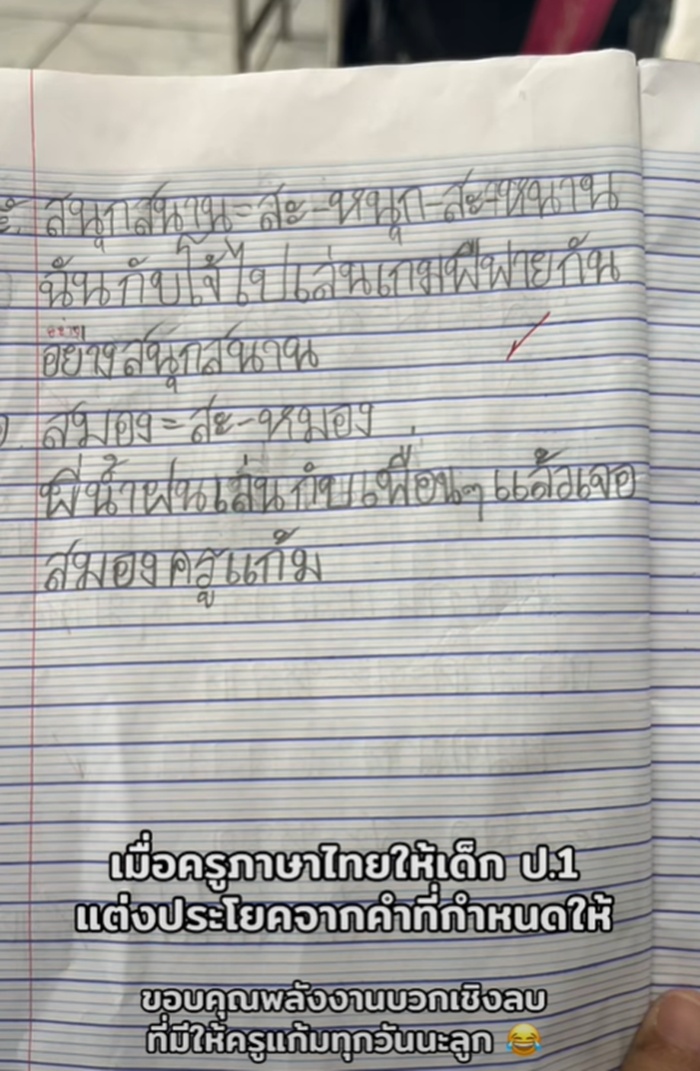 สนุกสนาน=สะ-หนุก-สะ-หนาน
ฉันกับโจ้ไปเล่นเกมฟีฟายกัน
อย่าง
อย่างสนุกสนาน
สมอง=สะ-หมอง
พี่น้ำฝนเล่นกับเพื่อนๆแล้วเจอ
สมองครูแก้ม
เมื่อครูภาษาไทยให้เด็ก ป.1
แต่งประโยคจากคำที่กำหนดให้
ขอบคุณพลังงานบวกเชิงลบ
ที่มีให้ครูแก้มทุกวันนะลูก 😂